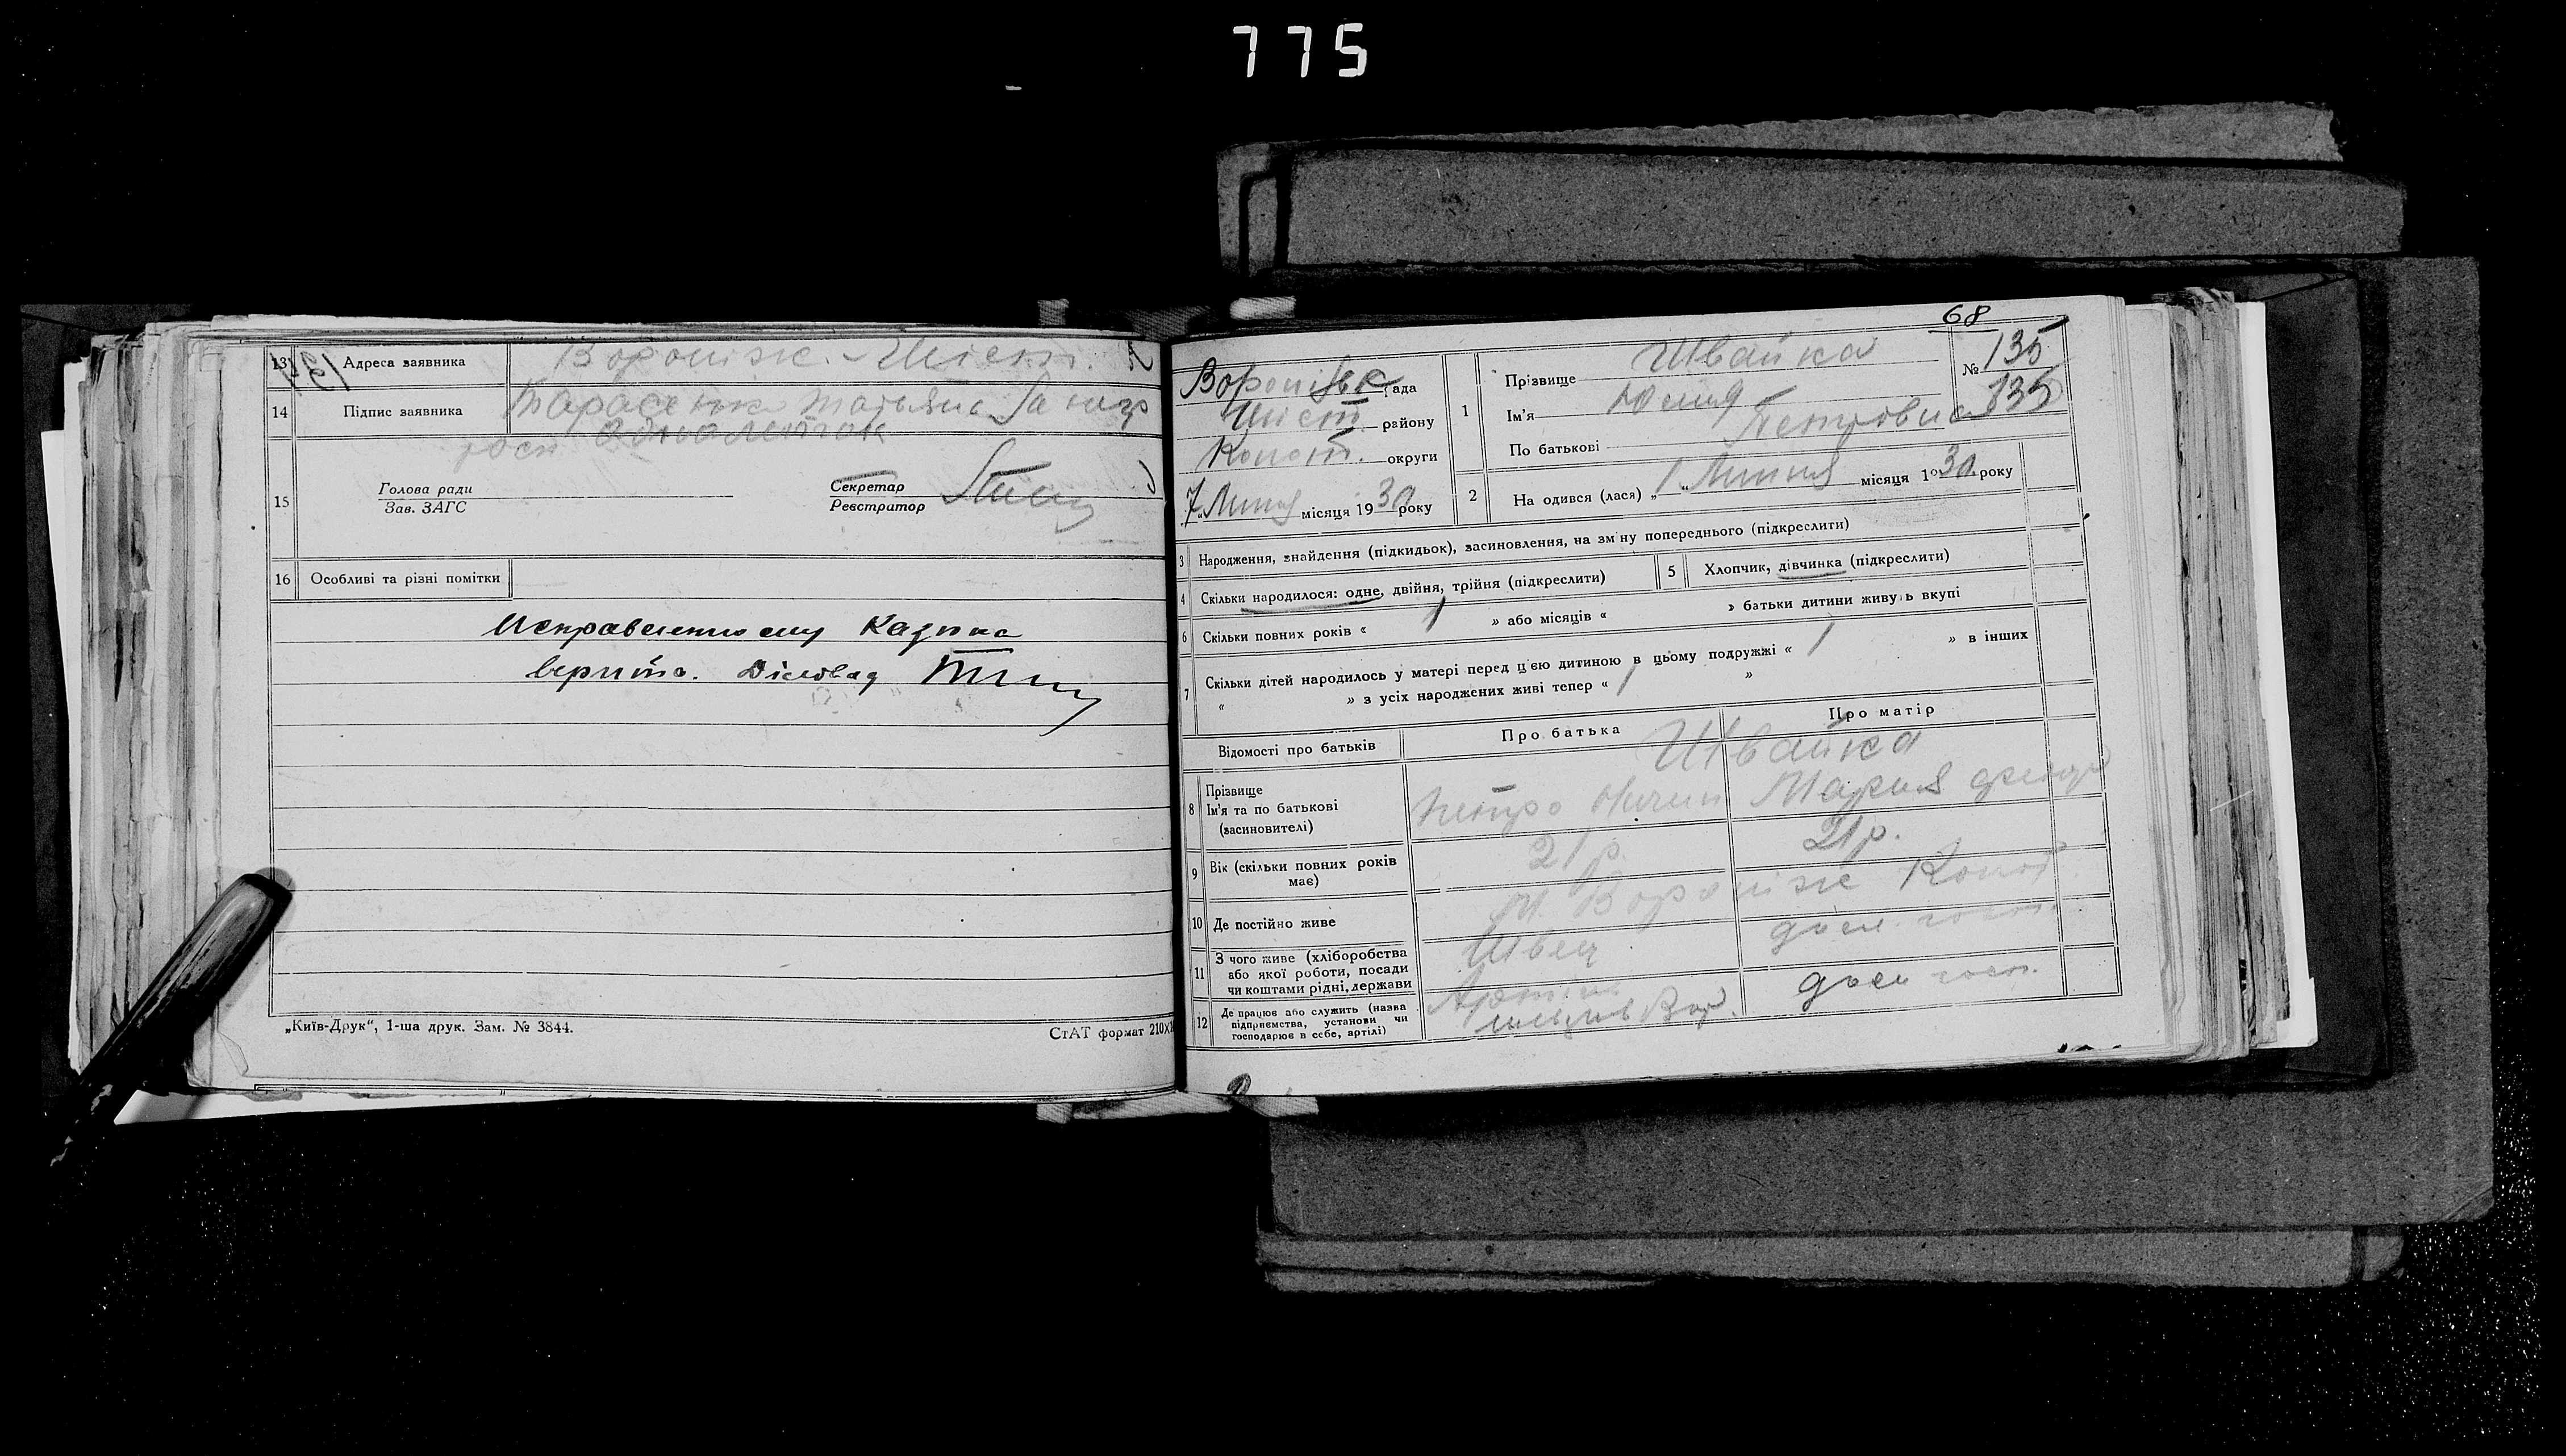 775
13 Адреса заявника Вороніж. Шіст.
14 Підпис заявника Тарасенко Татьяна За негр
15 Голова ради
Зав. ЗАГС
Секретар
Реєстратор
16 Особливі та різні помітки
Исправленному
верить. Діловод
„Київ-Друк“, 1-ша друк. Зам. № 3844.
СтАТ формат 210X
68
Воронізьк рада
Шіст району
Конот. округи
7 Липня місяця 1930 року
1 Прізвище Швайка
Ім'я Юлия
По батькові Петровна
№ 135
135
2 На одився (лася) „1“ Липня місяця 1930 року
3 Народження, знайдення (підкидьок), засиновлення, на зм ну попереднього (підкреслити)
4 Скільки народилося: одне, двійня, трійня (підкреслити)
5 Хлопчик, дівчинка (підкреслити)
6 Скільки повних років « 1 » або місяців « » батьки дитини живуть вкупі
7 Скільки дітей народилось у матері перед цією дитиною в цьому подружжі « 1 » в інших
« » з усіх народжених живі тепер « 1 »
Відомості про батьків Про батька Про матір
8 Прізвище Швайка
Ім'я та по батькові Петро Мария
(засновителі)
9 Вік (скільки повних років має) 21 р. 21 р.
10 Де постійно живе м. Вороніж Конот.
11 З чого живе (хліборобства або якої роботи, посади чи коштами рідні, держави Швец дом. госп.
12 Де працює або служить (назва підприємства, установи чи господарює в себе, артілі) Артіль Вор. дом госп.